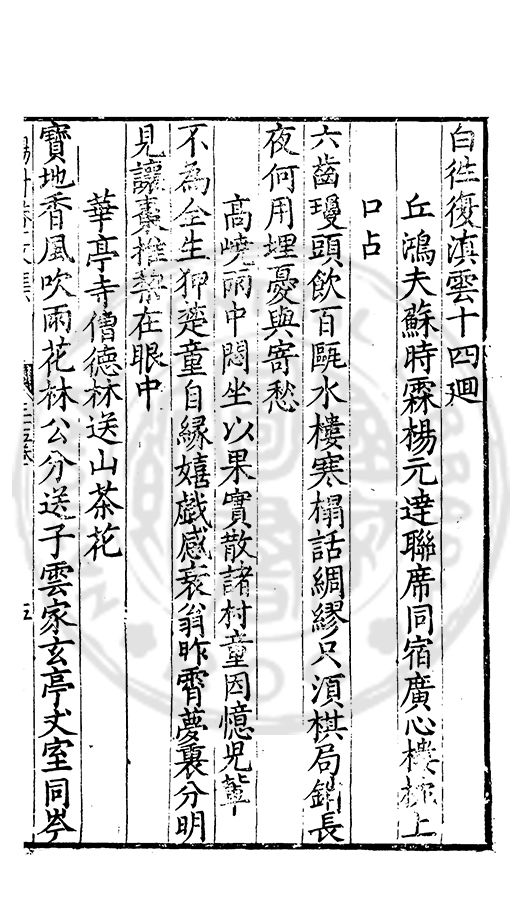 白徃復滇雲十四廻
丘鴻夫蘇時霖楊元達聯席同宿廣心樓枕上
口占
六齒瓊頭飲百甌水樓寒榻話綢繆只湏棋局銷長
夜何用埋憂與寄愁
高嶢雨中悶坐以果實散諸村童因憶兒軰
不為全生狎楚童自緣嬉戯感衰翁昨宵夢裏分明
見讓棗推梨在眼中
華亭寺僧德林送山茶花
寶地香風吹雨花林公分送子雲家玄亭丈室同岑